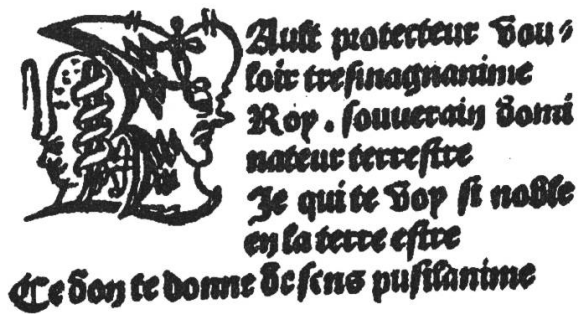 HAult protecteur vou⸗
loir treſmagnanime
Roy. ſouuerain domi
nateur terreſtre
Je qui te voy ſi noble
en la terre eſtre
Ce don te donne de ſens puſilanime